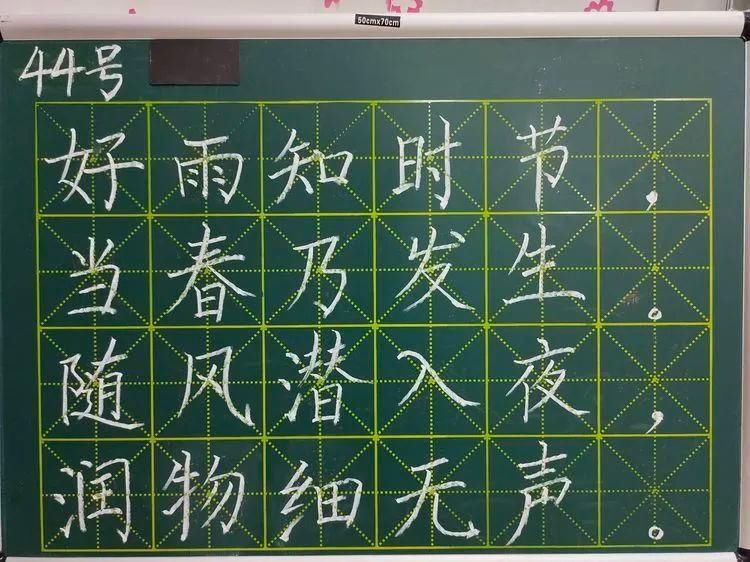 50cmx70cm
44号
好雨知时节，
当春乃发生。
随风潜入夜，
润物细无声。